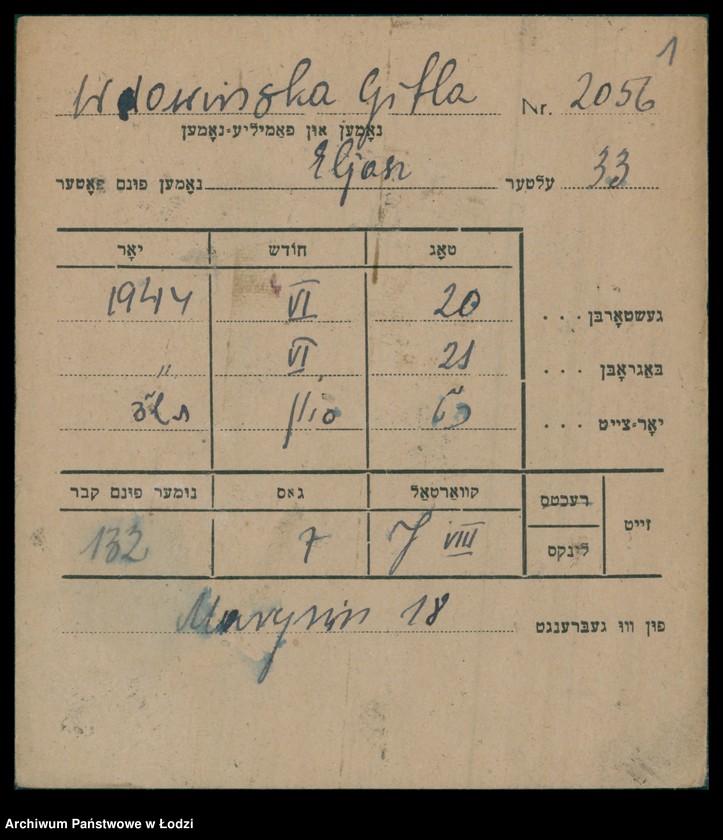 1
Wdowińska Gitla Nr. 2056
נאָמען און פאַמיליע-נאָמען
נאָמען פונם פאָטער Eljasz עלטער 33
טאָג חודש יאָר
געשטאָרבן . . . 20 VI 1944
באַגראָבן . . . 21 VI "
יאָר-צייט . . . כ"ט סיון תש"ד
זייט רעכטס קוואַרטאַל גאס נומער פונם קבר
לינקס J VIII 7 132
פון וואו געברענגט Marysin 18
Archiwum Państwowe w Łodzi